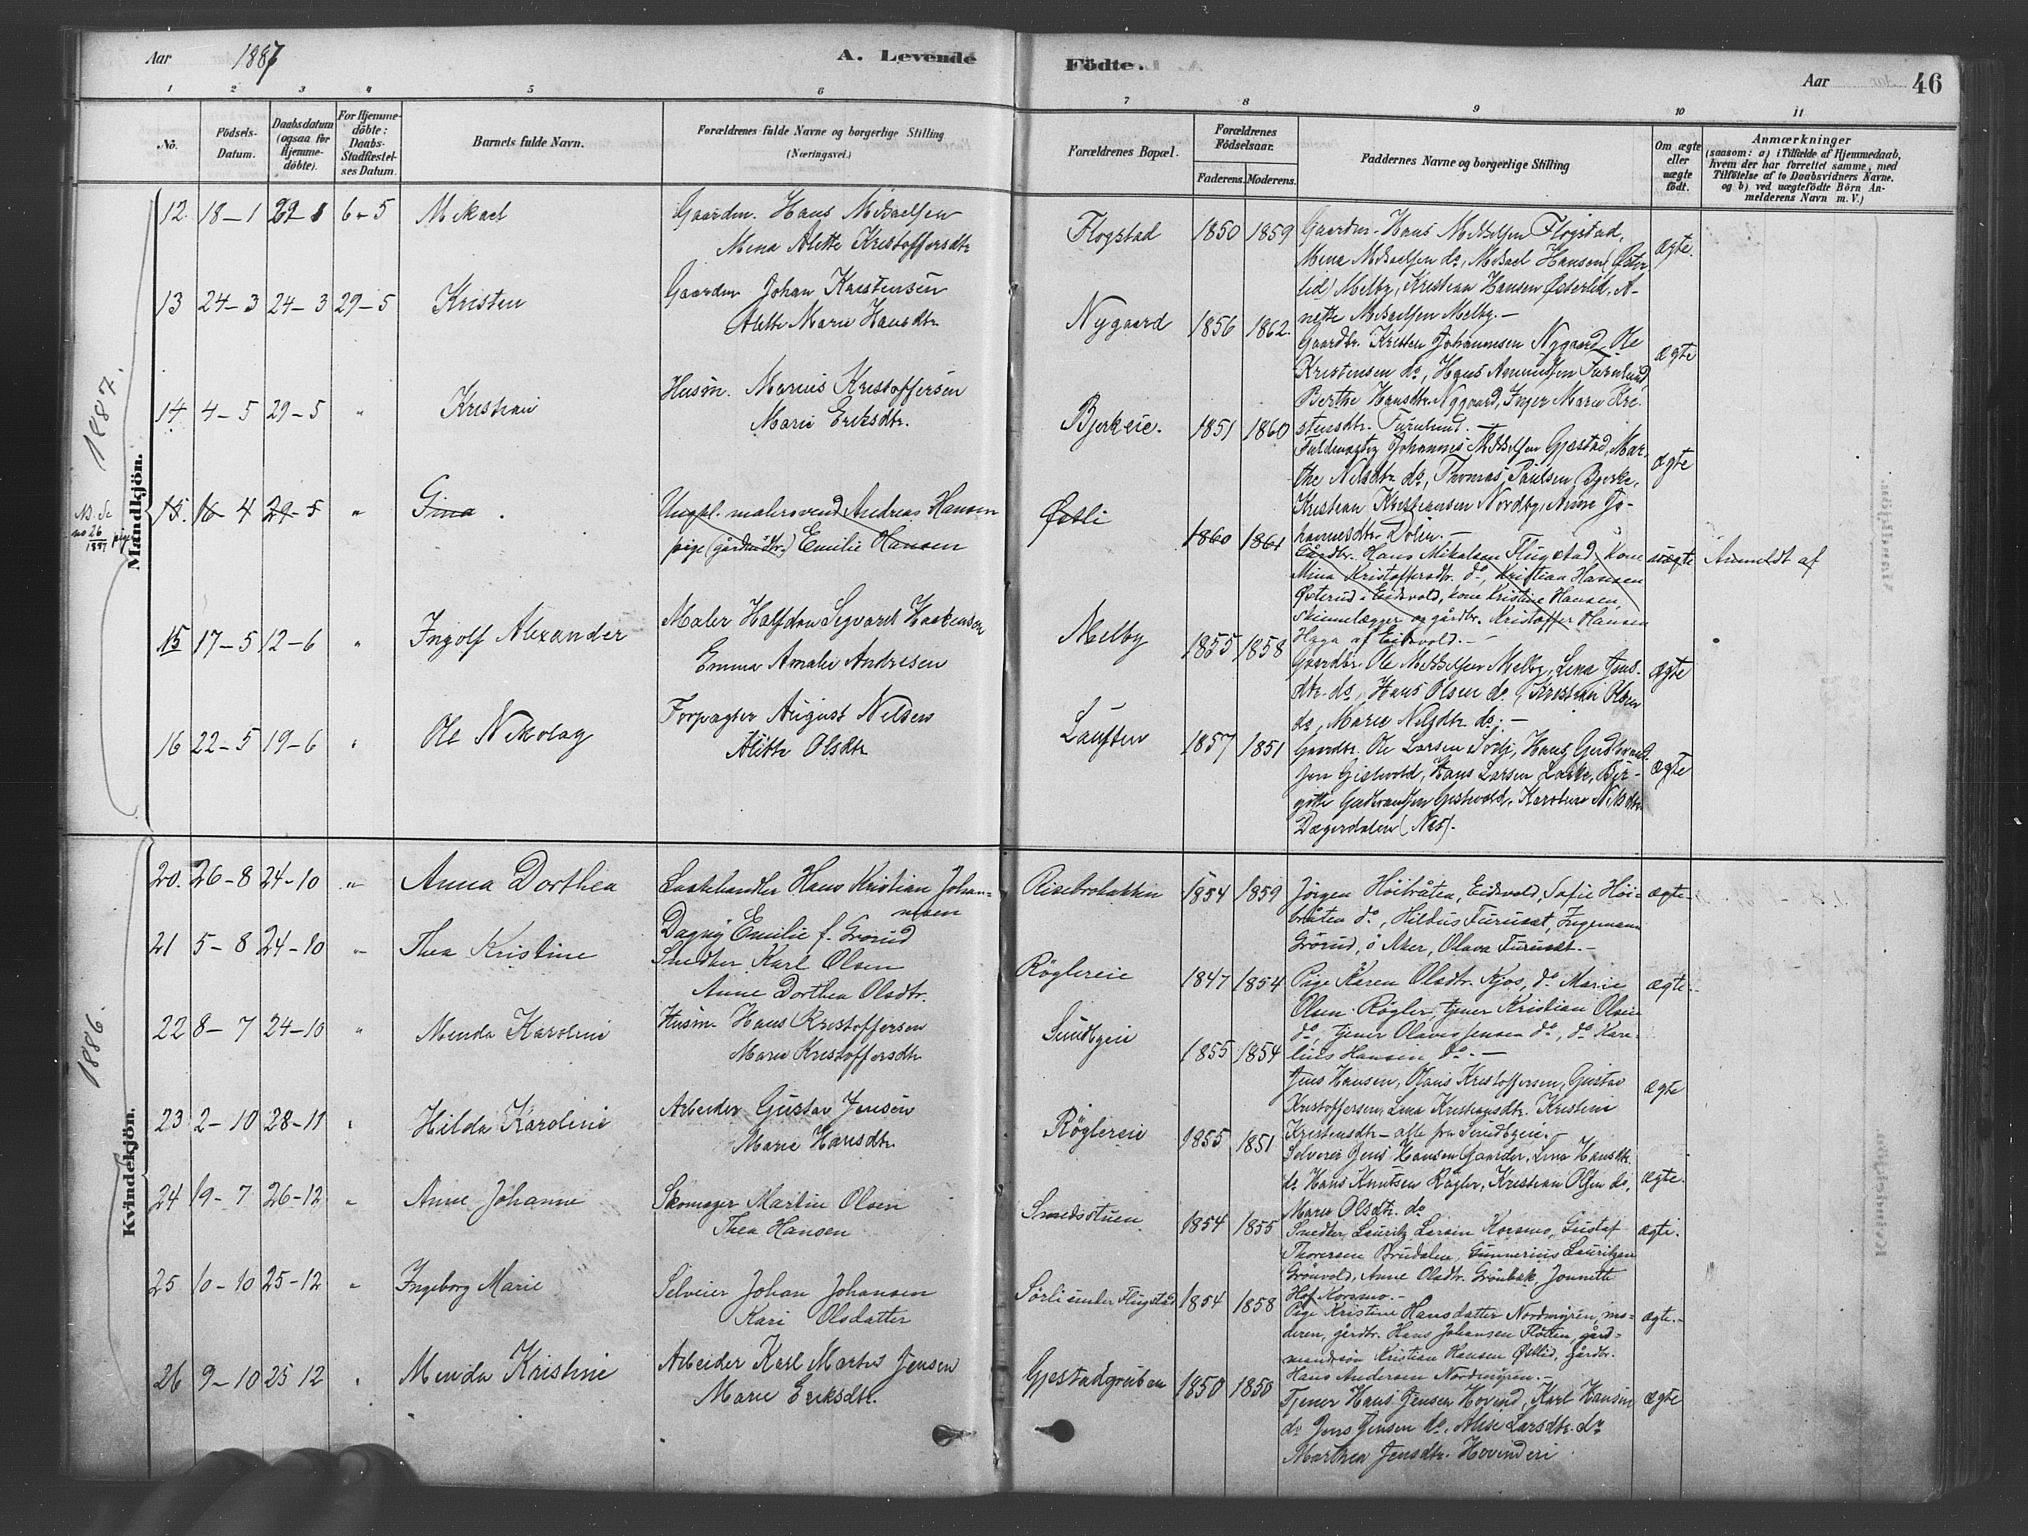 Aar 1887 A. Levende Födte. Aar 46
1 2 3 4 5 6 7 8 9 10 11
No. Födsels-Datum. Daabsdatum (ogsaa for Hjemmedöbte). For Hjemmedöbte: Daabs-Stadfæstelses Datum. Barnets fulde Navn. Forældrenes fulde Navne og borgerlige Stilling (Næringsvei.) Forældrenes Bopæl. Forældrenes Födselsaar. Faderens. Moderens. Faddernes Navne og borgerlige Stilling Om ægte eller uægte födt. Anmærkninger
(saasom: a) i Tilfælde af Hjemmedaab, hvem der har forrettet samme, med Tilföielse af to Daabsvidners Navne. og b) ved uægtefödte Börn Anmelderens Navn m. V.)
1887.
Mandkjön.
12 18-1 29-1 6-5 Mikael Gaardm. Hans Mikaelsen
Mina Alette Kristoffersdtr Flogstad 1850 1859 Gaardm. Hans Mikkelsen Flogstad, ægte.
Mina Mikaelsen do, Mikael Hansen (Øster-
lid) Melby, Kristian Hansen Østerlid, A-
nette Mikaelsen Melby.-
13 24-3 24-3 29-5 Kristen Gaardm Johan Kristensen
Alette Marie Hansdtr. Nygaard 1856 1862. Gaardbr. Kristen Johannesen Nygaard, Ole ægte
Kristensen do, Hans Amundsen Furulund
Berthe Hansdtr. Nygaard, Inger Marie Kri-
stensdtr. Furulund.-
14 4-5 29-5 " Kristian Husm. Marius Kristoffersen
Marie Eriksdtr. Bjerkeie. 1851 1860 Johannes Mikkelsen Gjestad, Mar- ægte
the Nilsdtr do, Thomas Paulsen Bjerke,
Kristian Kristiansen Nordby, Anne Jo-
hannesdtr. Dölen.-
No 26 1887 pige
15. 16-4 29-5 " Gina. Ungkl. malersvend Andreas Hansen
pige (gårdmdtr.) Emilie Hansen Østli 1860 1861 Gårdbr. Hans Mikalsen Flugstad, kone uægte Anmeldt af
Mina Kristoffersdtr. do, Kristian Hansen
Østerud i Eidsvold, kone Kristine Hansen,
gårdbr. Kristoffer Hansen
Haga af Eidsvold.-
15 17-5 12-6 " Ingolf Alexander Maler Halfdan Sigvardt Haakensen
Emma Amalie Andresen Melby 1855 1858 Gaardbr. Ole Mikkelsen Melby, Lina Jens- ægte
dtr. do, Hans Olsen do, Kristian Olsen
do, Marie Nilsdtr. do.-
16 22-5 19-6 " Ole Nikolay Forpagter August Nilsen
Alette Olsdtr 1857 1851 Gaardbr. Ole Larsen Hans Gulbrand- ægte
sen Gistvold, Hans Larsen Bir-
gitte Gulbrandsen Karoline Nilsdtr.
Dægerdalen (Næs).
1886.
Kvindekjön.
20. 26-8 24-10 " Anna Dorthea Hans Kristian Johan-
nesen
Dagny Emilie f. Grorud Risebrobakken 1854 1859 Jörgen Höibråten, Eidsvold, Sofie Höi- ægte
bråten do, Hildus Furuset, Ingemann
Grörud, i Aker, Olava Furuset.-
21 5-8 24-10 " Thea Kristine Snedker Karl Olsen
Anne Dorthea Olsdtr. Röglereie 1847 1854 Pige Karen Olsdtr. Kjos, do Marie ægte.
Olsen Rögler, tjener Kristian Olsen
do, tjener Olavis Jensen do, do Kare-
lius Hansen do.-
22 8-7 24-10 " Menda Karoline Husm Hans Kristoffersen
Marie Kristoffersdtr Sundbyeie 1855 1854 Jens Hansen, Olaus Kristoffersen, Gustav ægte
Kristoffersen, Lina Kristiansdtr. Kristine
Kristensdtr - alle fra Sundbyeie.-
23 2-10 28-11 " Hilda Karoline Arbeider Gustav Jensen
Marie Hansdtr. Röglereie 1855 1851 Selveier Jens Hansen Gaarder, Lina Hansdtr. ægte.
do Hans Knutsen Rögler, Kristian Olsen do,
Marie Olsdtr. do
24 19-7 26-12 " Anne Johanne Skomager Martin Olsen
Thea Hansen Smedstuen 1854 1855 Snedker Lauritz Larsen Korsmo, Gustaf ægte.
Thoresen Brudalen, Gunnerius Lauritzen
Grönvold, Anne Olsdtr. Grönbak, Jonnette
Hof Korsmo.-
25 10-10 25-12 " Ingeborg Marie Selveier Johan Johansen
Kari Olsdatter Sörli under Flugstad 1854 1858 Pige Kristine Hansdatter Nordmyren, mo- ægte.-
deren, gårdbr. Hans Johansen Flöten, gård-
mandssön Kristian Hansen Østlid, gårdbr.
Hans Andersen Nordmyren.-
26 9-10 25 12 " Menda Kristine Arbeider Karl Martin Jensen
Marie Eriksdtr. Gjestadgruben 1850 1850 Tjener Hans Jensen Hovind, Karl Hansen ægte
do Jens Jensen do, Larsdtr. do
Marthea Jensdtr. Hovinderi